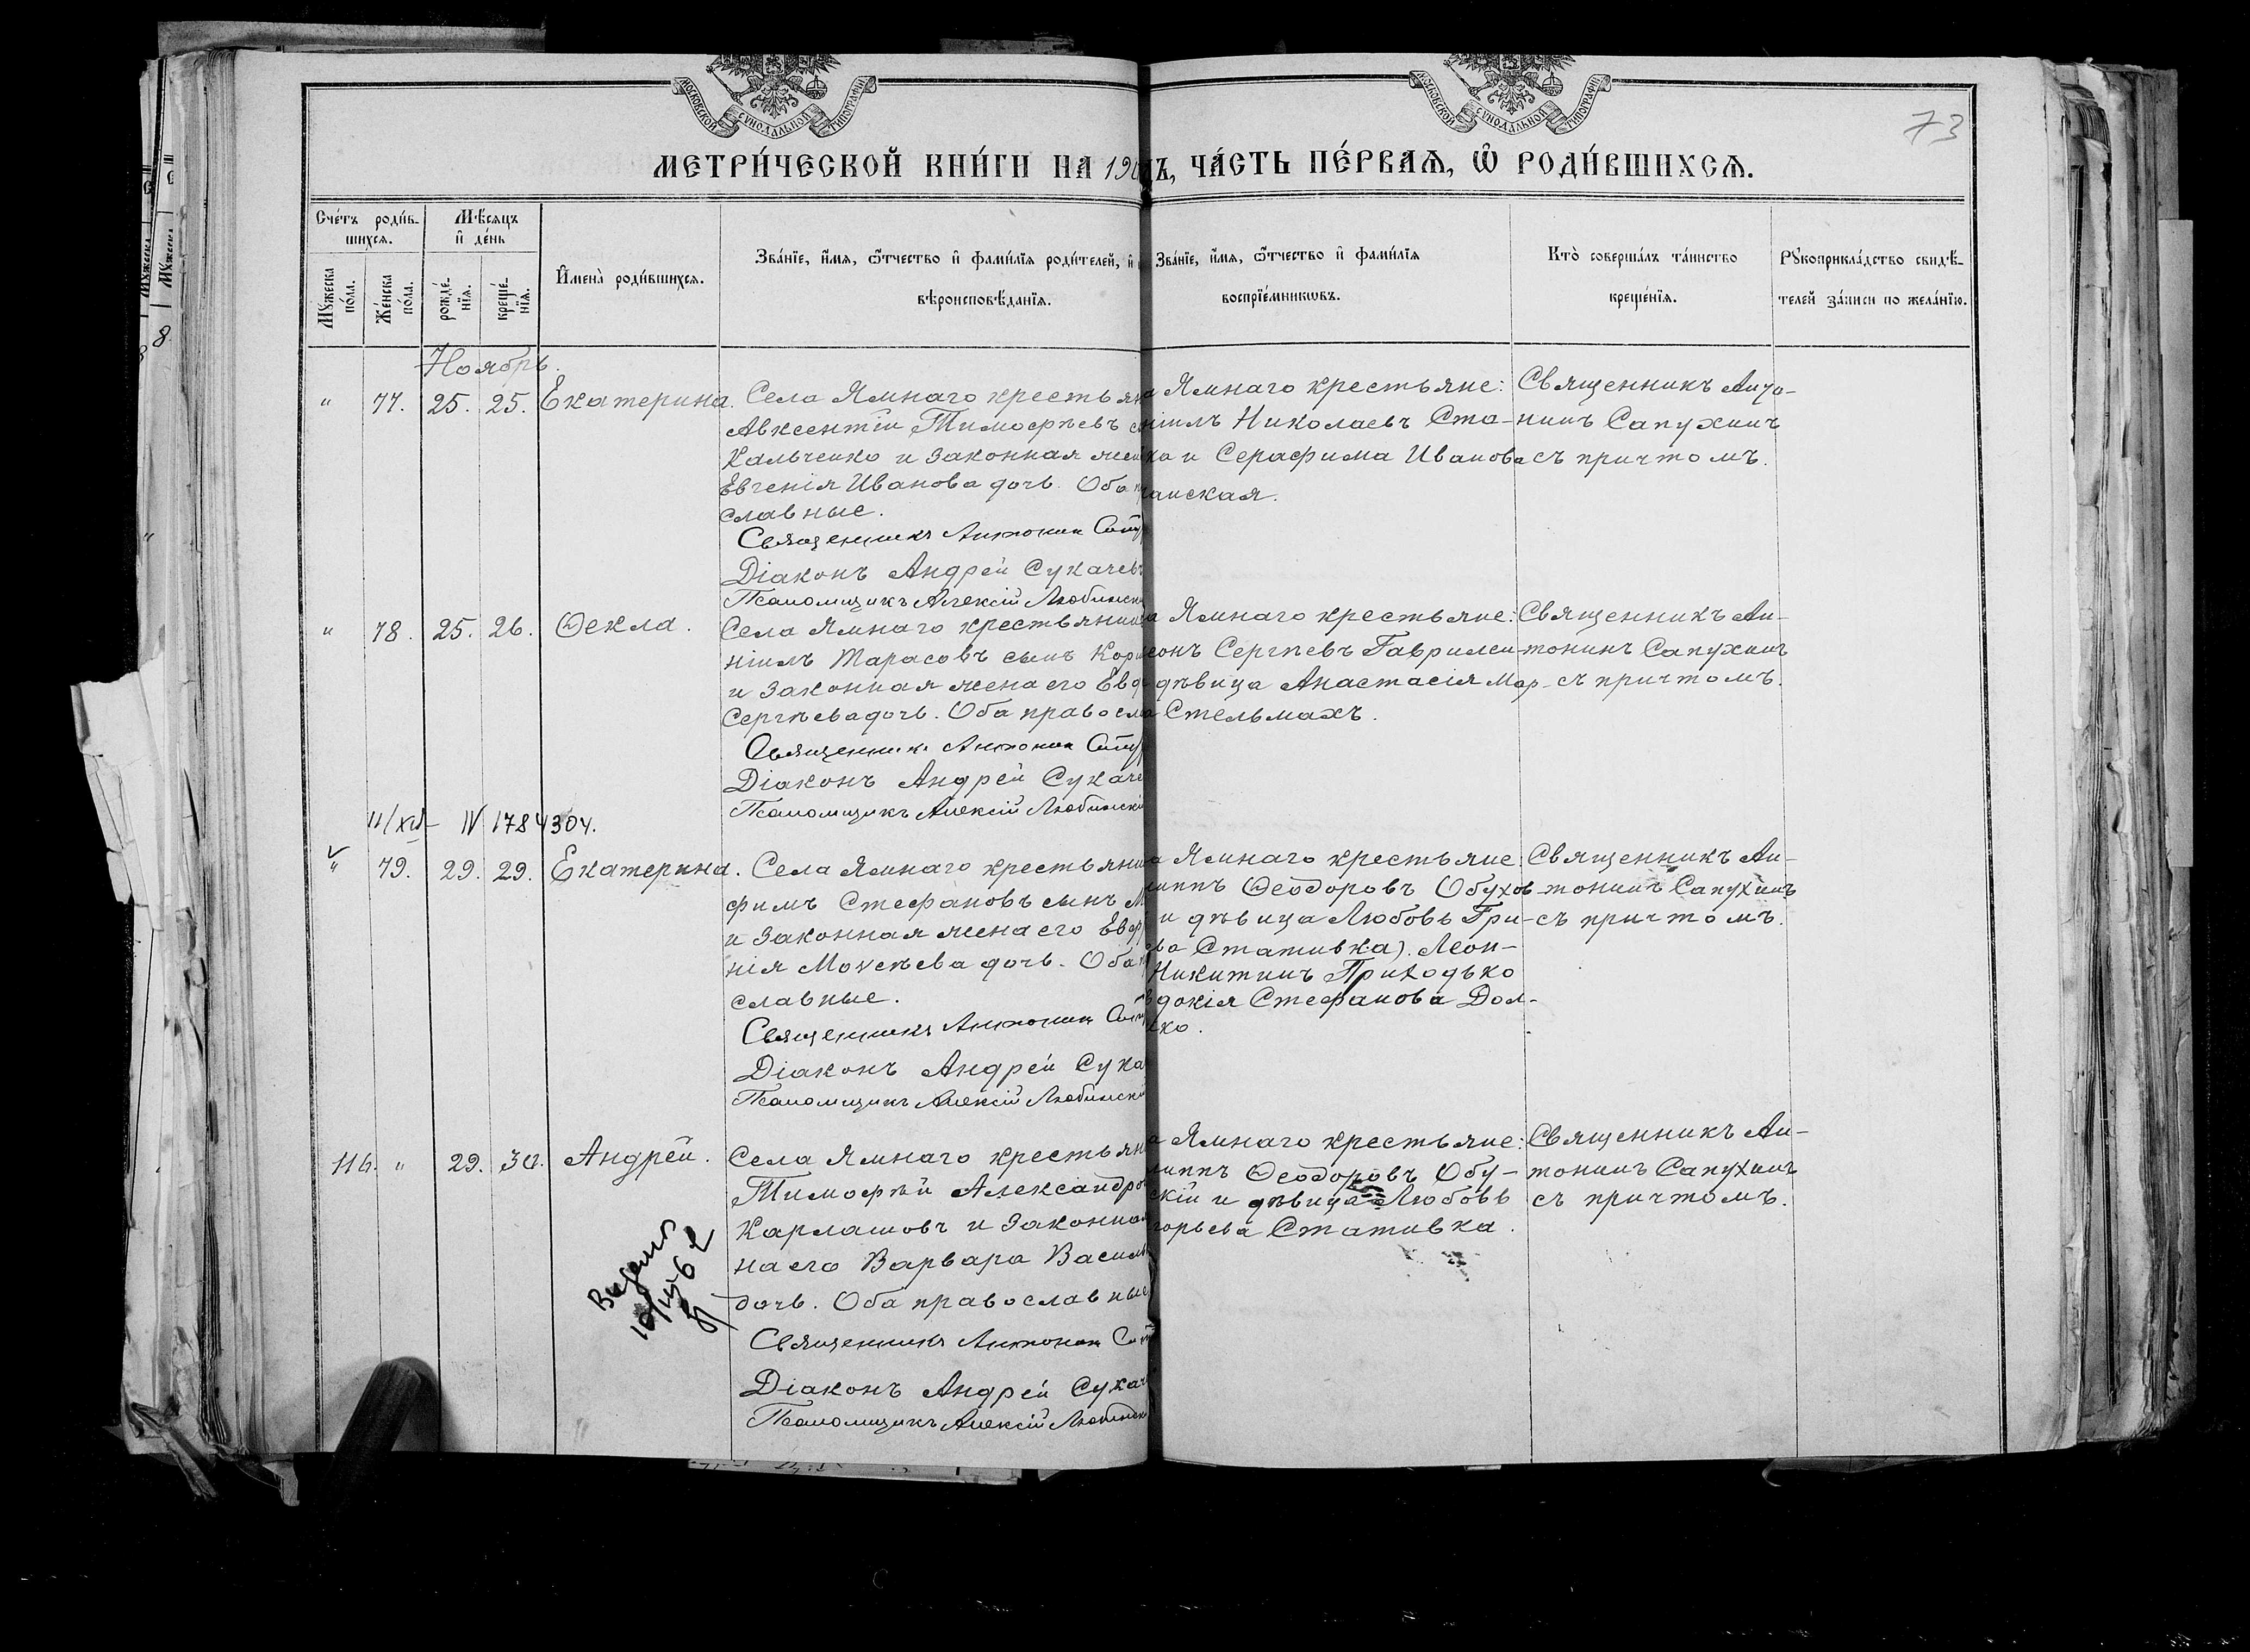 МОСКОВСКОЙ СУНОДАЛЬНОЙ ТИПОГРАФІИ
МОСКОВСКОЙ СУНОДАЛЬНОЙ ТИПОГРАФІИ
73
МЕТРИ́ЧЕСКОЙ КНИ́ГИ НА 190 ЧА́СТЬ ПЕ́РВАѦ, Ѿ РОДИ́ВШИХСѦ.
Сче́тъ роди́в-
шихсѧ.
Мѣ́сѧцъ
и҆ де́нь
Мꙋ́жеска по́ла.
Же́нска по́ла.
рожде́-
нїѧ.
креще́-
нїѧ.
И҆мена̀ роди́вшихсѧ.
Зва́нїе, и҆́мѧ, ѻ҆́тчество и҆ фами́лїѧ роди́телей, и҆
вѣроисповѣ́данїѧ.
Зва́нїе, и҆́мѧ, ѻ҆́тчество и҆ фами́лїѧ
воспрїе́мникѡвъ.
Кто̀ соверша́лъ та́инство
креще́нїѧ.
Рꙋкоприкла́дство свидѣ́-
телей за́писи по жела́нїю.
Ноябрь.
" 77. 25. 25. Екатерина.
Села Ямнаго крестьян
Авксентій Тимофѣевъ с
Кальченко и законная жен
Евгенія Иванова дочь. Оба п
славные.
Священникъ Антонин Сапу
Діаконъ Андрей Сукачевъ
Псаломщикъ Алексій Любински
а Ямнаго крестьяне:
ніилъ Николаевъ Ста-
ко и Серафима Иванова
анская.
Священникъ Анто-
нинъ Сапухинъ
съ причтомъ.
" 78. 25. 26. Ѳекла.
Села Ямнаго крестьянин
ніилъ Тарасовъ сынъ Кор
и законная жена его Евд
Сергѣева дочь. Оба правосла
Священникъ Антонин Сапу
Діаконъ Андрей Сукаче
Псаломщикъ Алексій Любинскі
а Ямнаго крестьяне:
сонъ Сергѣевъ Гаврилен-
дѣвица Анастасія Мар-
Стельмахъ.
Священникъ Ан-
тонинъ Сапухинъ
съ причтомъ.
IV 1784304.
" 79. 29. 29. Екатерина.
Села Ямнаго крестьяни
фимъ Стефановъ сынъ М
и законная жена его Евф
нія Моѵсѣева дочь. Оба п
славные.
Священникъ Антонин Сап
Діаконъ Андрей Сука
Псаломщикъ Алексій Любински
а Ямнаго крестьяне:
липпъ Ѳеодоровъ Обухов-
и дѣвица Любовь Гри-
ева Стативка). Леон-
Никитинъ Приходько
вдокія Стефанова Дол-
ко.
Священникъ Ан-
тонинъ Сапухинъ
съ причтомъ.
116. " 29. 30. Андрей.
Села Ямнаго крестьян
Тимофѣй Александров
Карлашовъ и законная
на его Варвара Василь
дочь. Оба православные
Священникъ Антонин Сап
Діаконъ Андрей Сукач
Псаломщикъ Алексій Любински
а Ямнаго крестьяне:
липпъ Ѳеодоровъ Обу-
скій и дѣвица Любовь
горьева Стативка.
Священникъ Ан-
тонинъ Сапухинъ
съ причтомъ.